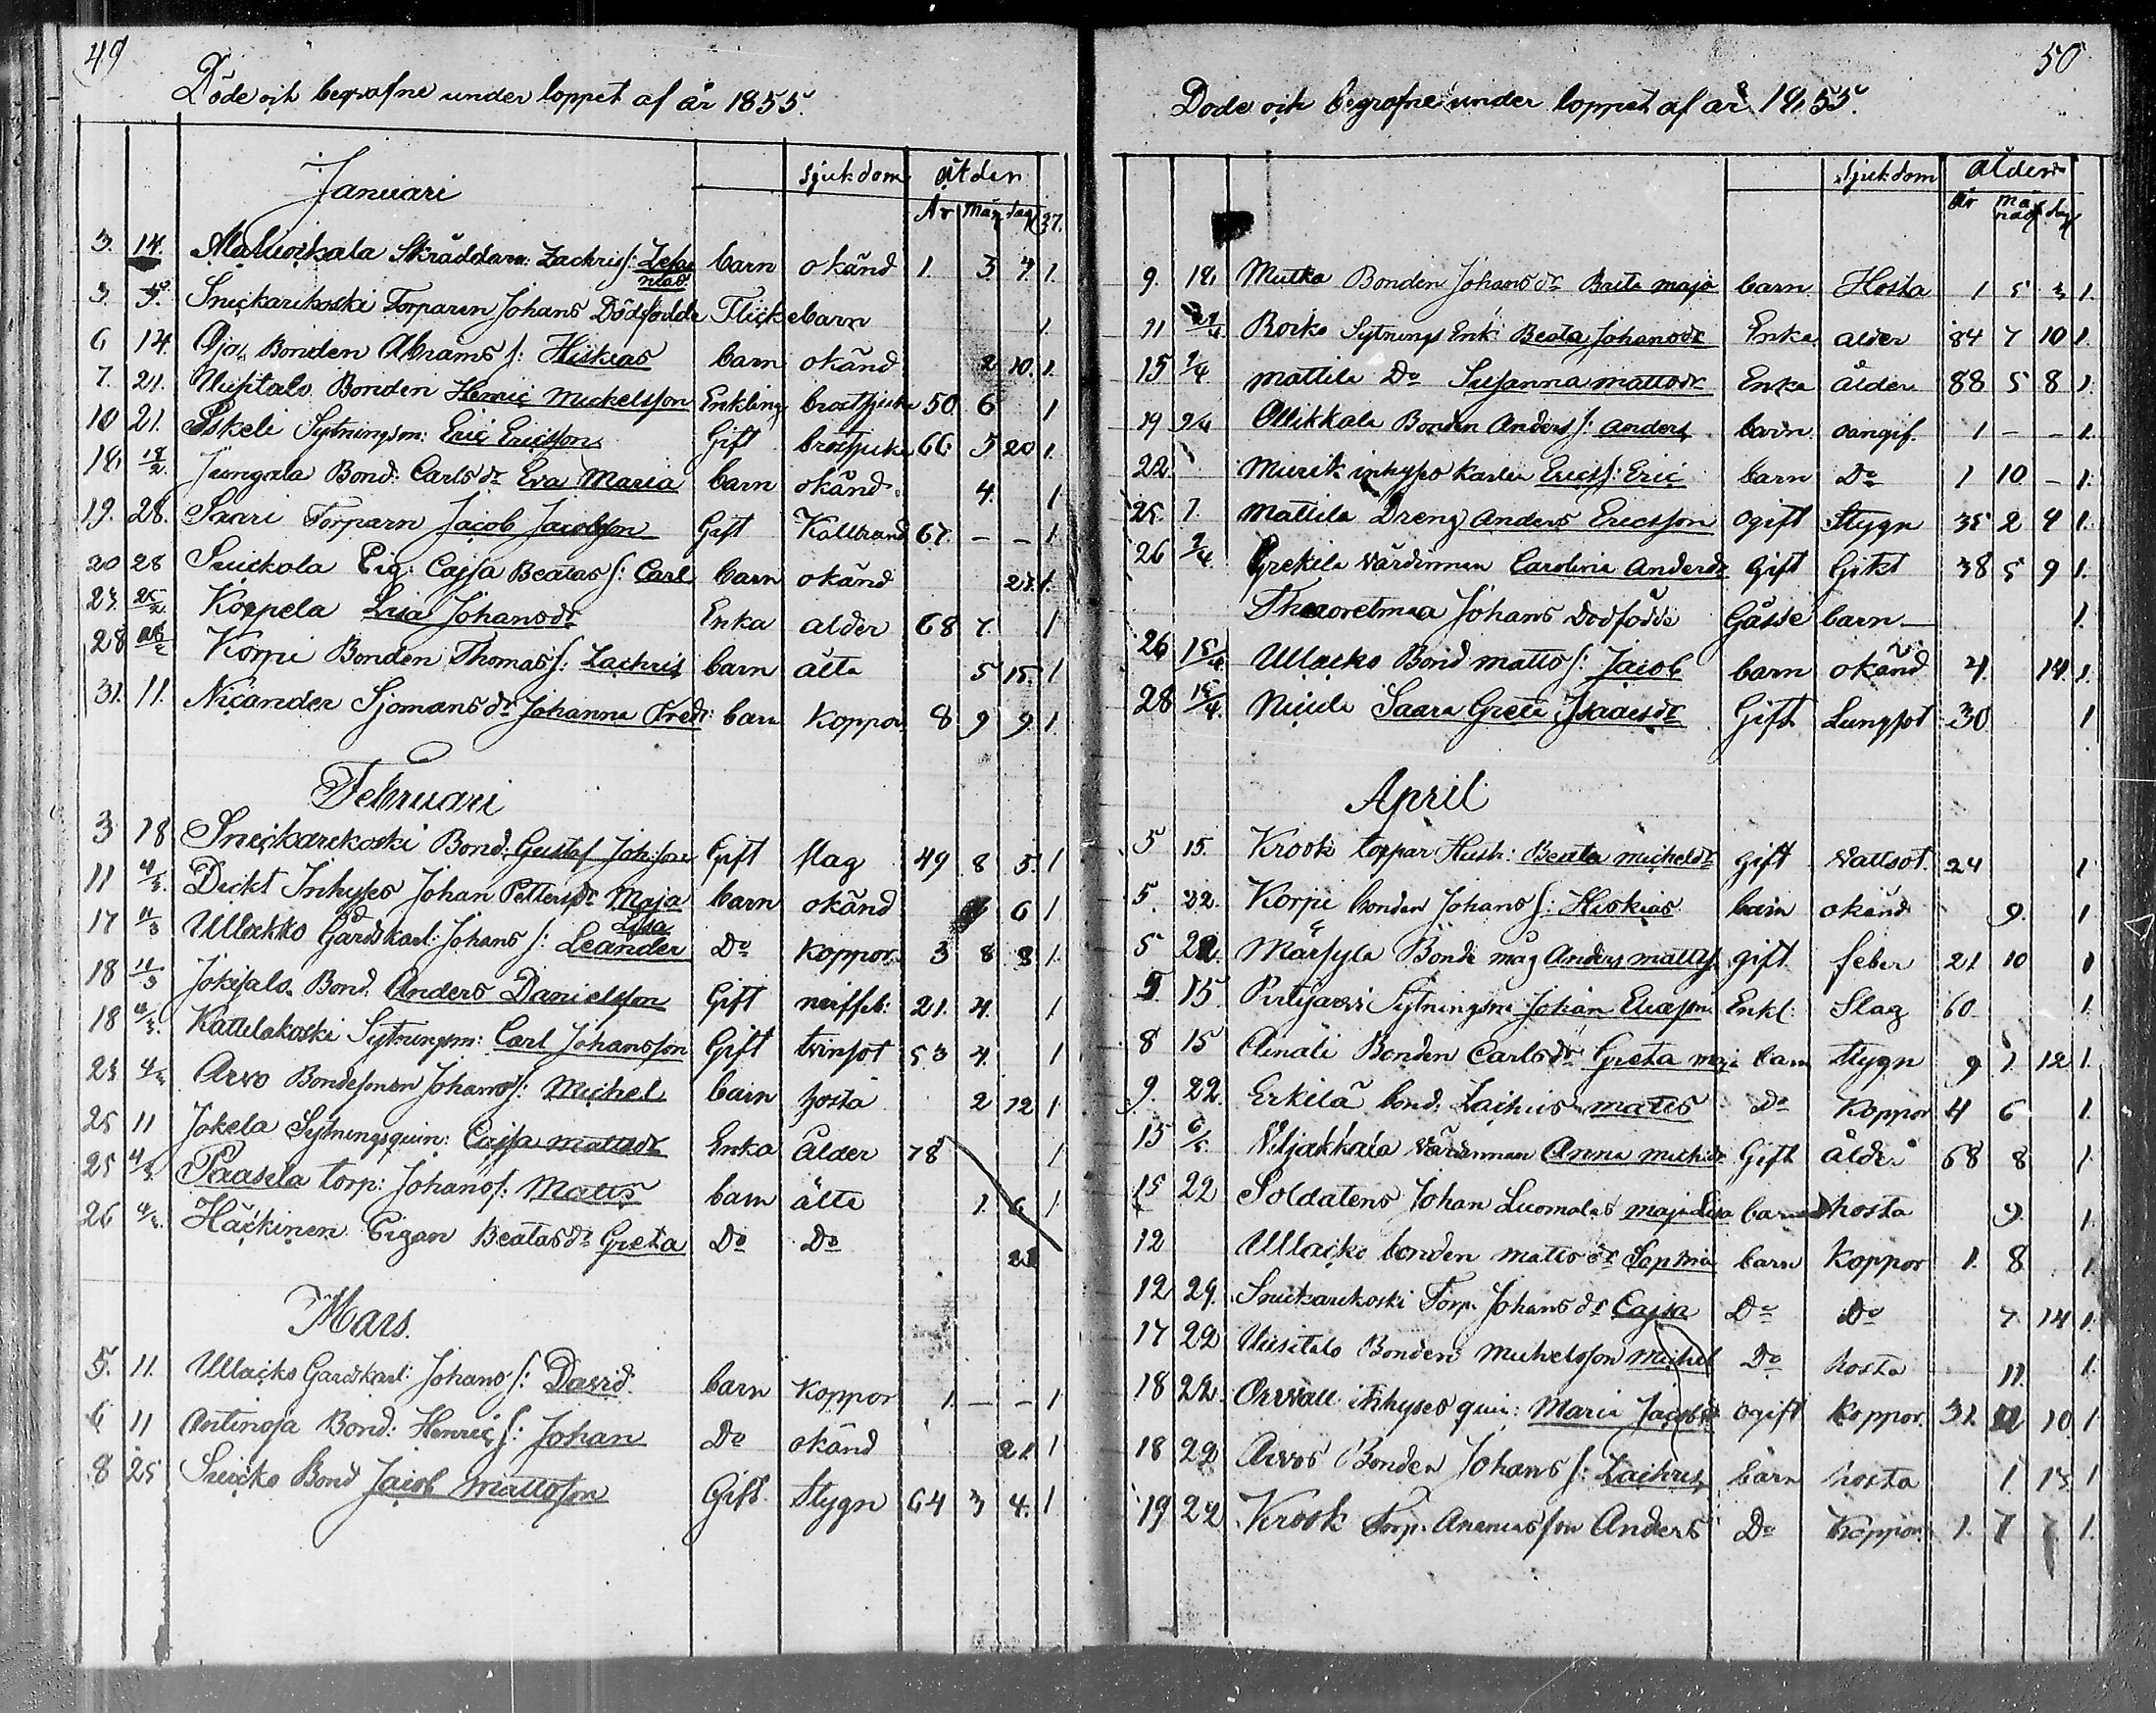 49
Döde och begrafne under loppet af år 1855.
Januari sjukdom ålder
År mån dag
3. 14. Alaluoikala Skräddare: Zachris s: Zefa nias. barn okänd 1. 3 7. 1.
3. 5. Snickarikoski Torparen Johans Dödfödde Flickebarn 1.
6 14. Oja Bonden Abrams s: Hiskias barn okänd 2 10. 1.
7. 21. Uusitalo Bonden Henric Mickelsson Enkling brostsjuka 50 6 1
10 21. Iskeli Sytningsm: Eric Ericsson Gift brostsjuka 66 5 20 1.
18 18/2. Bond: Carls dr Eva Maria barn okänd. 4. 1
19. 28. Saari Torparn Jacob Jacobsson Gift Kallbrand 67. – – 1
20 28 Snickola Pig: Cajsa Beatas s: Carl barn okänd 23. 1.
23. 25/2 Korpela Lisa Johansdr Enka alder 68 7. 1
28 Korpi Bonden Thomas s: Zachris barn älta 5 15. 1
31. 11. Nicander Sjomans dr Johanna Fred: barn Koppor 8 9 9 1.
Februari
3 18 Snickarekoski Bond: Gustaf Joh:son Gift slag 49 8 5. 1
11 4/3. Dickt Inhyses Johan Petters dr Maja Lisa barn okänd 6 1
17 11/3 Ullakko Gårdskarl: Johans s: Leander Do Koppor 3 8 8 1.
18 11/3 Jokisalo Bond. Anders Danielsson Gift 21. 4. 1
18 Kattilakoski Sytningsm: Carl Johansson Gift tvinsot 53 4. 1
23 4/3 Arvo Bondesonen Johans s: Michel barn hosta 2 12 1
25 11 Jokela Sytningsquin: Cajsa Mattsdr Enka Ålder 78 1
25 4/3 Paasila torp: Johans s: Matts barn älta 1. 6 1
26 4/3. Häckinen Pigan Beatas dr Greta Do Do 21
Mars.
5. 11. Ullacko Gardskarl: Johans s: David barn Koppor 1. – – 1
6 11 Antinoja Bond: Henric s: Johan Do okänd 21 1
8 25 Bond Jacob Mattsson Gift Stygn 64 3 4. 1
50
Dode och begrafne under loppet af år 1855.
sjukdom ålder
År må nad dag
9. 18. Mutka Bonden Johans dr Brita maja barn Hosta 1 5 3 1.
11 Roiko Sytnings Enk: Beata Johansdr Enka alder 84 7 10 1.
15 9/4. Mattila Do Susanna Mattsdr Enka ålder 88 5 8 1.
19 24 Ollikkala Bonden Anders s: Anders barn oangif. 1 – – 1.
22. Murik inhyses karlen Erics s: Eric barn Do 1 10 – 1.
25. 1. Mattila Dreng Anders Ericsson ogift Stygn 35 2 4 1.
26 9/4. Grekila Värdinnan Carolina Andersdr Gift Gikt 38 5 9 1.
Johans Dodfödde Gåsse barn – 1.
26 15/4 Ullacko Bond matts s: Jacob barn okänd 4. 14 1.
28 15/4. Saara Greta Isaacsdr Gift Lungsot 30 1
April
5 15. Krook torpar Hust: Beata Michelsdr gift Vattsot. 24 1.
5. 22. Korpi bonden Johans s: Hiskias barn okänd 9. 1
5 22. Märsylä Bonde måg Anders Matts: gift feber 21 10 1
5 15. Pirtijärvi Sytningsm Johan Enkl: Slag 60 1.
8 15 Bonden Carls dr Greta maja barn Stygn 9 7 12 1.
9. 22. Erkilä bond: Zachris matts Do Koppor 4 6 1.
15 6/5. Viljakkala Värdinnan Anna Mich:dr Gift ålder 68 8 1.
15 22 Soldatens Johan Luomalas maja Lisa barn hosta 9. 1.
12 Ullacko bonden matts dr barn Koppor 1. 8 1.
12 29. Snickarekoski Torp. Johans dr Cajsa Do Do 7 14 1.
17 22 Uusitalo Bonden Michelsson Michel Do hosta 11. 1.
18 22. Orrvall inhyses quin: Maria Jacobsdr ogift Koppor. 31. 10 1
18 22 Arvos Bonden Johans s: Zachris barn hosta 1. 13. 1
19 22 Krook Torp. Ananiasson Anders Do Koppor. 1. 7 7 1.